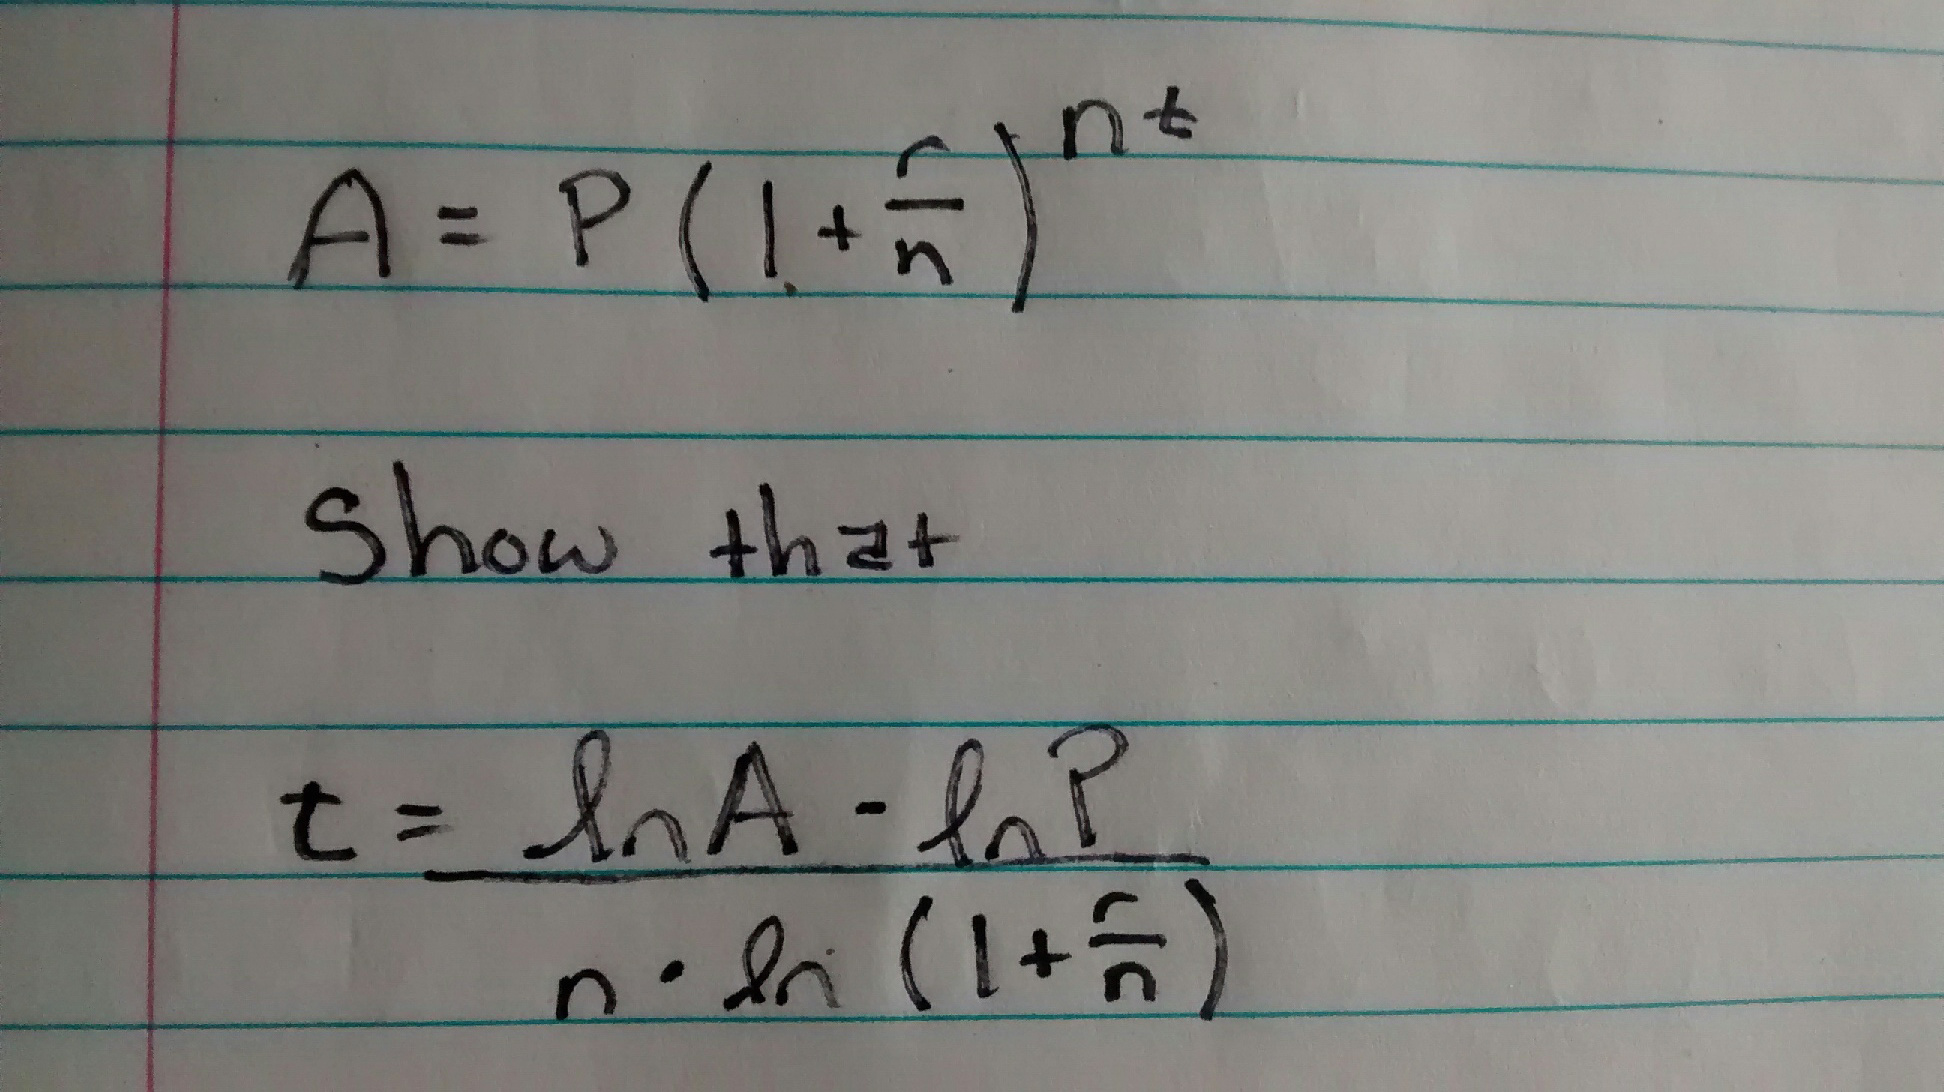 A = P(1 + r/n)^nt
Show that
t = lnA - lnP
n · ln(1 + r/n)